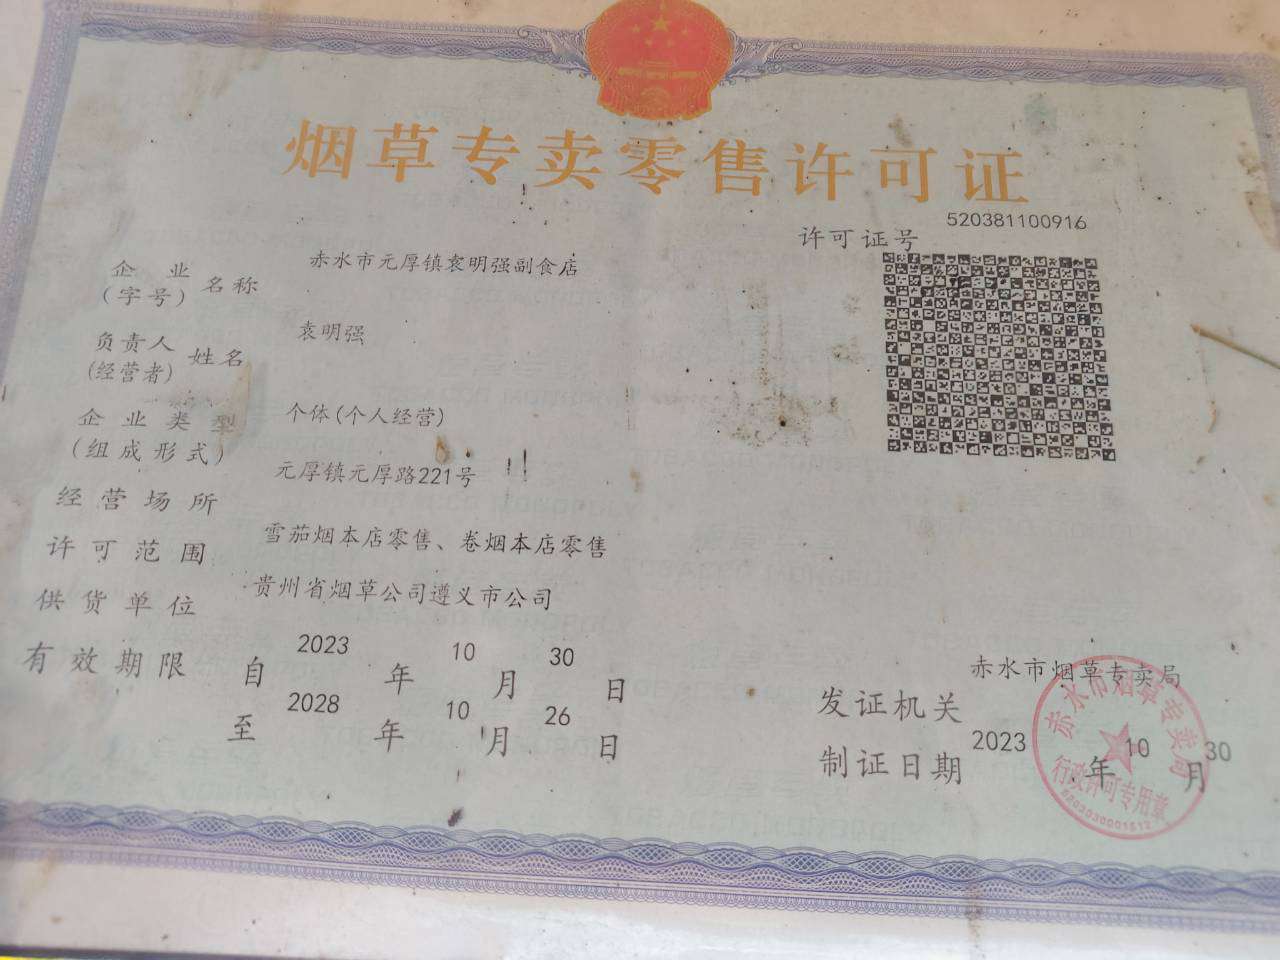 烟草专卖零售许可证
许可证号 520381100916
企业(字号)名称 赤水市元厚镇袁明强副食店
负责人(经营者)姓名 袁明强
企业类型(组成形式) 个体(个人经营)
经营场所 元厚镇元厚路221号
许可范围 雪茄烟本店零售、卷烟本店零售
供货单位 贵州省烟草公司遵义市公司
有效期限 自2023年10月30日
至2028年10月26日
发证机关 赤水市烟草专卖局
制证日期 2023年10月30
赤水市烟草专卖局
行政许可专用章